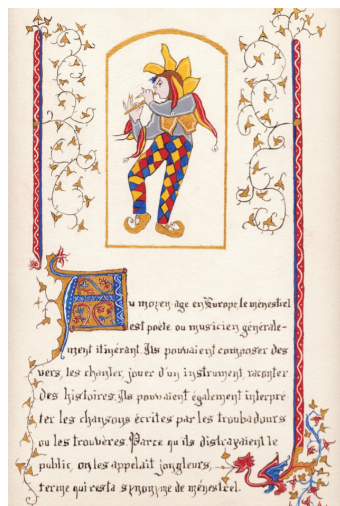 Au moyen-age en Europe le ménestrel
est poète ou musicien générale-
ment itinérant. Ils pouvaient composer des
vers, les chanter, jouer d'un instrument raconter
des histoires. Ils pouvaient également interpré
ter les chansons écrites par les troubadours
ou les trouvères. Parce qu'ils distrayaient le
public, on les appelait jongleurs,
terme qui resta synonyme de ménestrel.